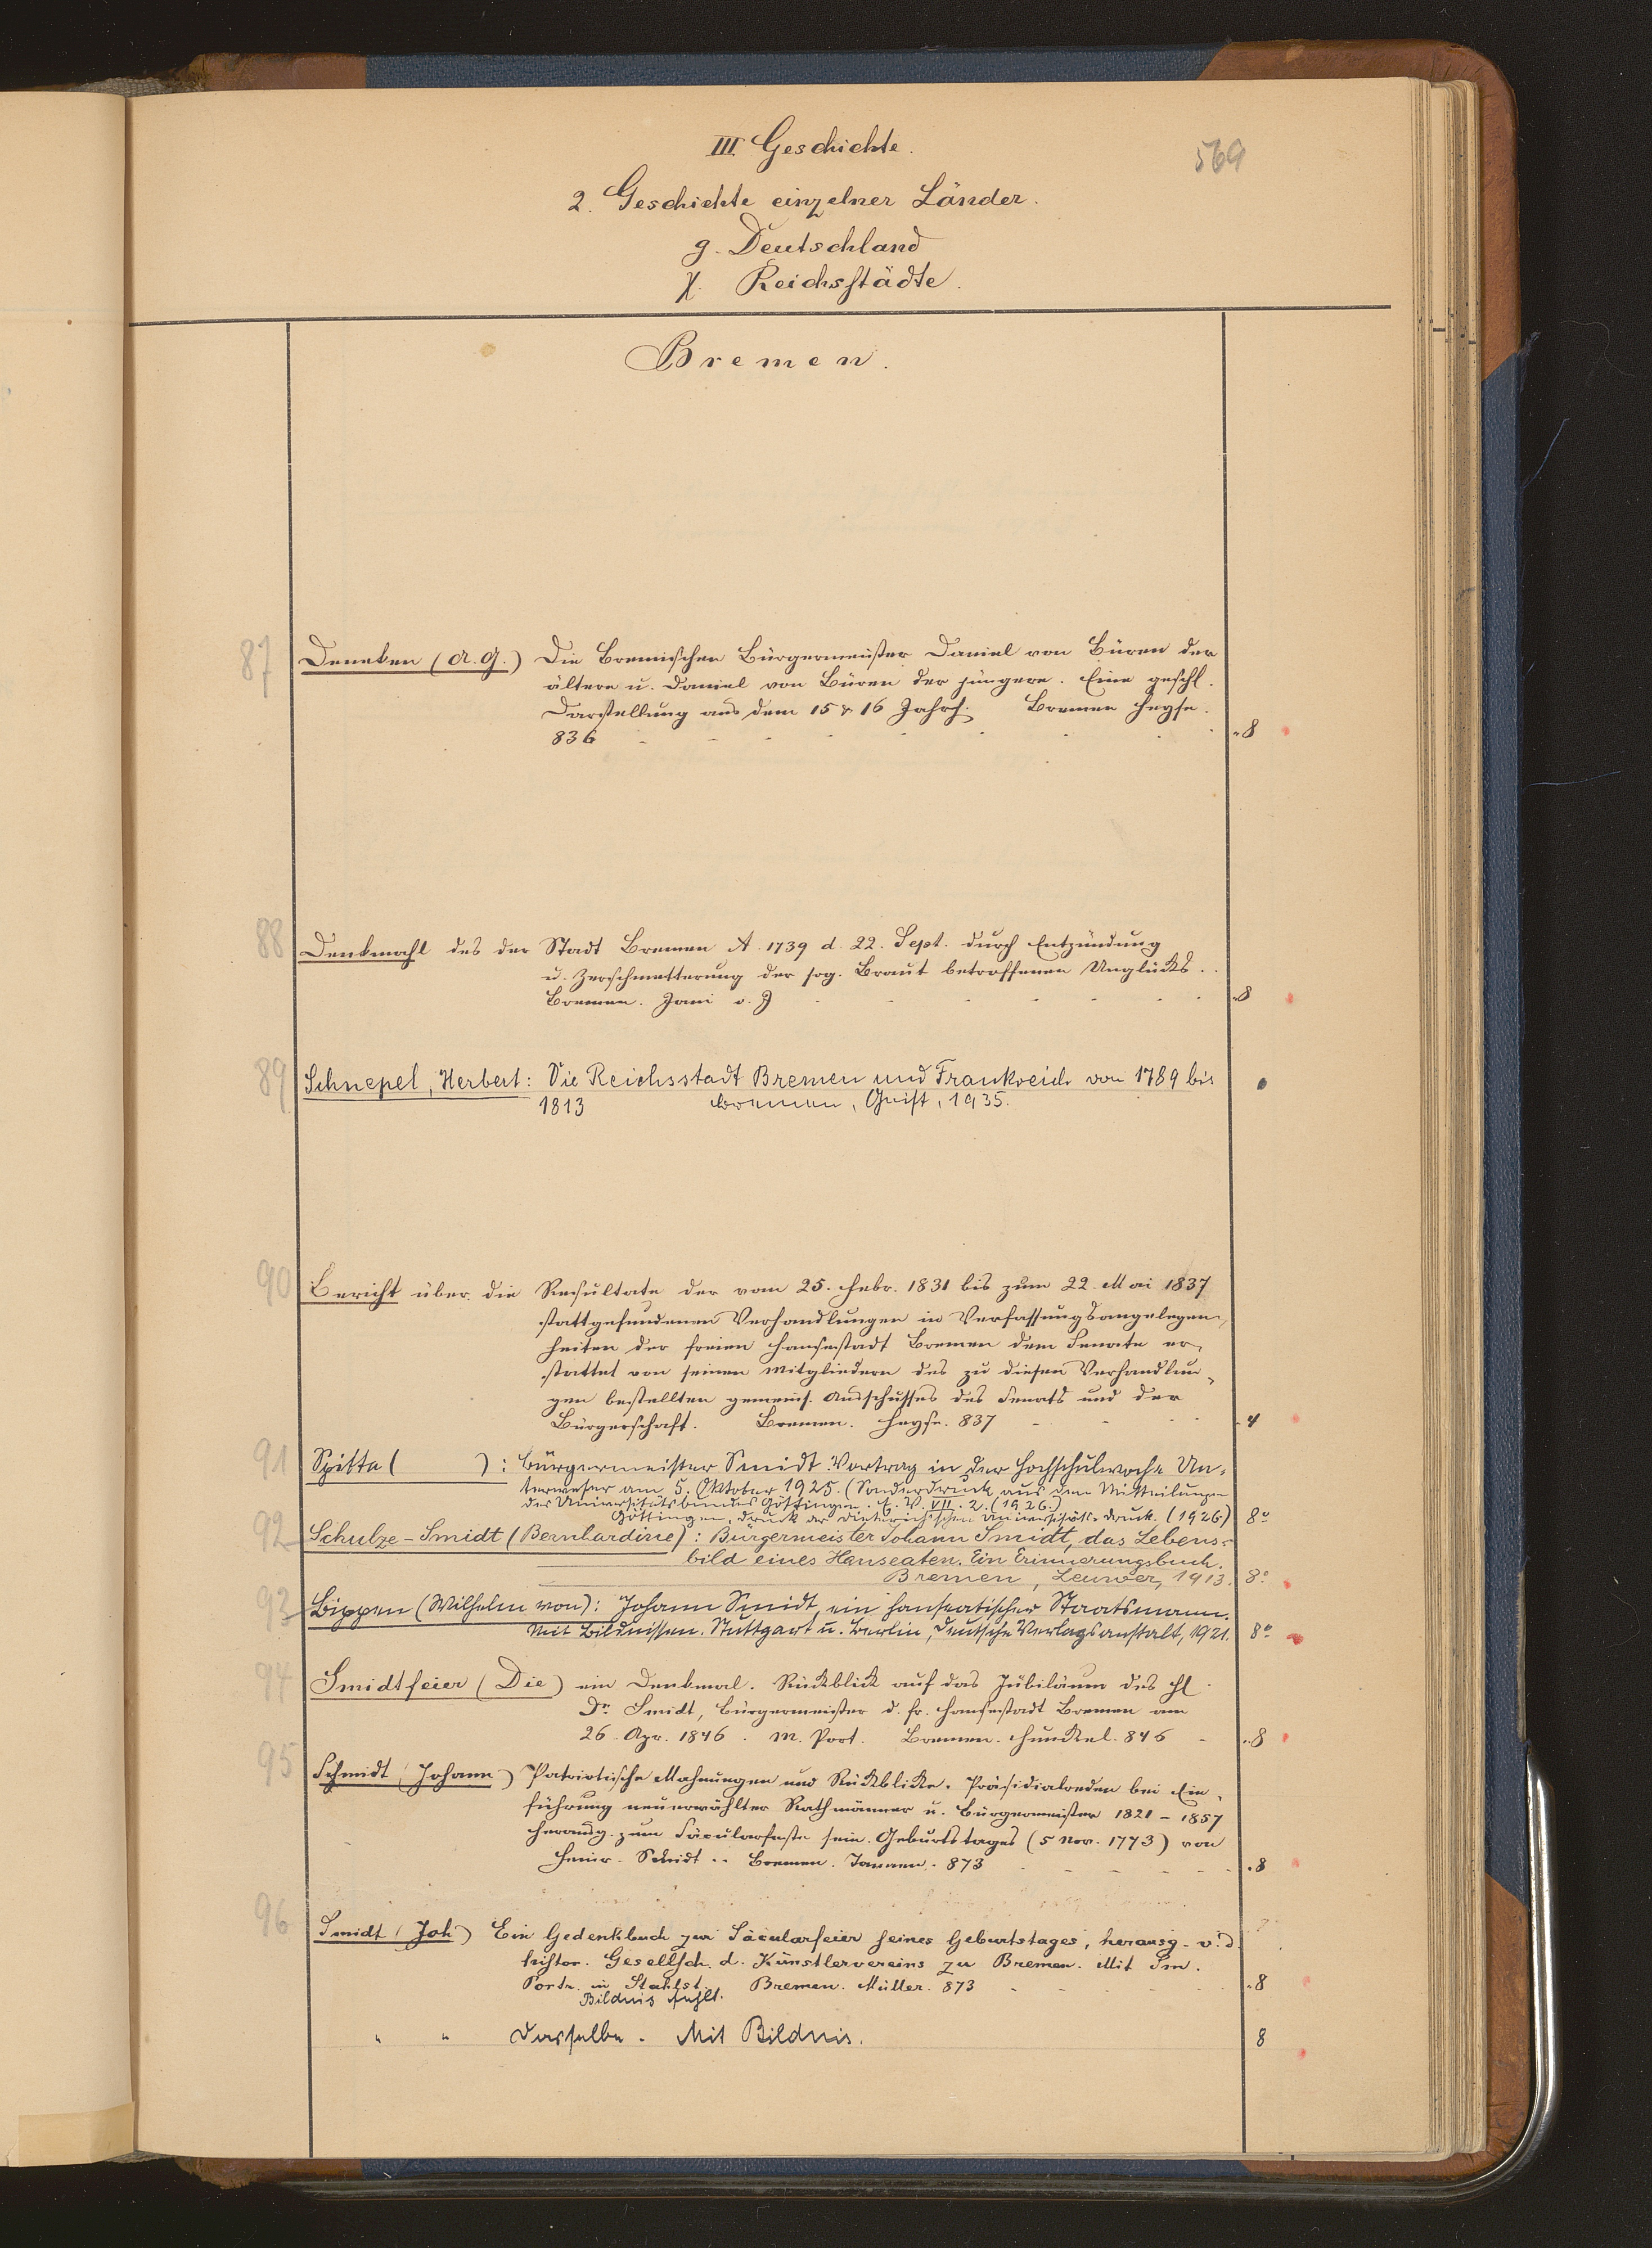 III. Geschichte.
569
2. Geschichte einzelner Länder.
g. Deutschland
χ. Reichsstädte.
Bremen.
87 Deneken (A. G.) Die Bremischen Bürgermeister Daniel von Büren der
ältere u. Daniel von Büren der jüngere. Eine geschl.
Darstellung aus dem 15 & 16 Jahrh. Bremen Heyse.
836 - - - - - - - - "8
88 Denkmahl des der Stadt Bremen A. 1739 d. 22. Sept. durch Entzündung
u. Zerschmetterung der sog. Braut betroffenen Unglücks.
Bremen. Jani o. J - - - - - - "8
89 Schnepel, Herbert: Die Reichsstadt Bremen und Frankreich von 1789 bis
1813 Bremen, Geist, 1935.
90 Bericht über die Resultate der vom 25. Febr. 1831 bis zum 22. Mai 1837
stattgefundenen Verhandlungen in Verfassungsangelegen-
heiten der freien Hansestadt Bremen dem Senate er-
stattet von seinen Mitgliedern des zu diesen Verhandlun-
gen bestellten gemeins. Ausschusses des Senats und der
Bürgerschaft. Bremen. Heyse. 837 - - - - 4
91 Spitta ( ): Bürgermeister Smidt. Vortrag in der Hochschulwoche Un-
terweser am 5. Oktober 1925. (Sonderdruck aus den Mitteilungen
des Universitätsbundes Göttingen. VII. 2. (1926.)
Göttingen, Druck der Dieterichschen Universitäts-druck. (1926) 8°
92 Schulze-Smidt (Bernhardine): Bürgermeister Johann Smidt, das Lebens-
bild eines Hanseaten. Ein Erinnerungsbuch.
Bremen, Leuwer, 1913. 8°
93 Bippen (Wilhelm von): Johann Smidt, ein hanseatischer Staatsmann.
Mit Bildnissen. Stuttgart u. Berlin, Deutsche Verlagsanstalt, 1921. 8°
94 Smidtfeier (Die) ein Denkmal. Rückblick auf das Jubiläum des H.
Dr. Smidt, Bürgermeister d. fr. Hansestadt Bremen am
26. Apr. 1846. M. Port. Bremen. Hunckel. 846 - "8
95 Schmidt (Johann) Patriotische Mahnungen und Rückblicke. Präsidialreden bei Ein-
führung neuerwählter Rathmänner u. Bürgermeister 1821 - 1857
Herausg. zum Säcularfeste sein. Geburtstages (5 Nov. 1773) von
Heinr. Smidt. Bremen. Tannen. 873 - - - - "8
96 Smidt (Joh) Ein Gedenkbuch zur Säcularfeier seines Geburtstages, herausg. v. d.
histor. Gesellsch. d. Künstlervereins zu Bremen. Mit Sm.
Portr. in Stahlst. Bremen. Müller. 873 - - - - "8
Bildnis fehlt.
" " Dasselbe. Mit Bildnis. 8